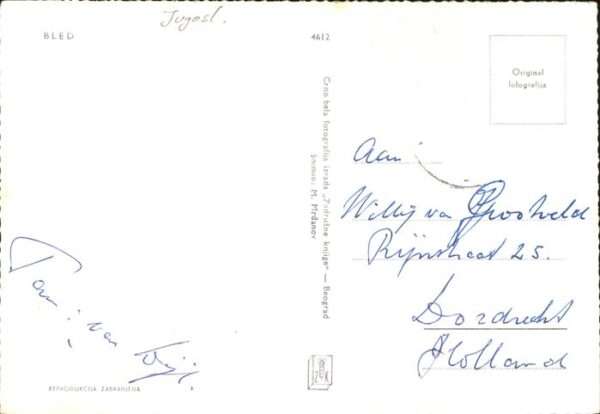 Jugosl.
BLED
4612
Original
fotografija
Crno bela fotografija izrada „Zadružna knjiga" — Beograd
Snimio: M. Mrdanov
Aan:
Willij van Grootveld
Rijnstraat 25.
Dordrecht
Holland
van
REPRODUKCIJA ZABRANJENA